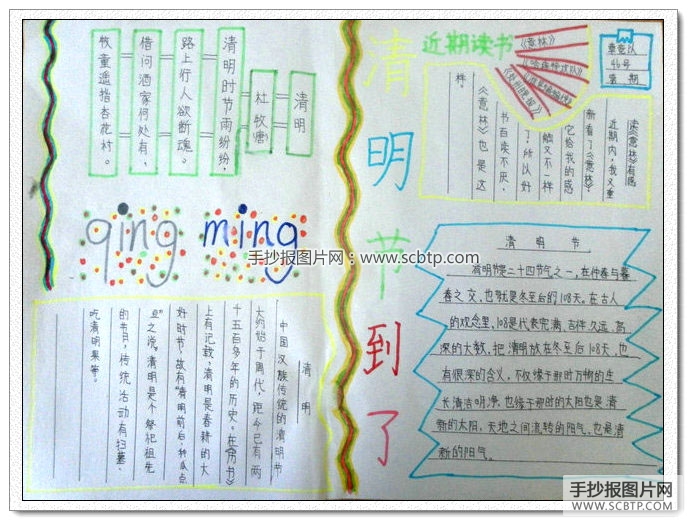 清明
杜牧(唐)
清明时节雨纷纷,
路上行人欲断魂。
借问酒家何处有,
牧童遥指杏花村。
qing ming
清明
中国汉族传统的清明节
大约始于周代,距今已有两
千五百多年的历史。在《历书》
上有记载:清明是春耕的大
好时节,故有“清明前后,种瓜点
豆”之说。清明是个祭祀祖先
的节日,传统活动有扫墓、
吃清明果等。
清明节到了
近期读书
《意林》
46号
读《意林》有感
近期内,我又重
新看了《意林》
它给我的感
触又不一样
了!所以好
书百读不厌,
《意林》也是这
样。
清明节
清明节是二十四节气之一,在仲春与暮
春之交,也就是冬至后的108天。在古人
的观念里,108是代表完满、吉祥、久远、高
深的大数,把清明放在冬至后108天,也
有很深的含义,不仅缘于那时万物的生
长清洁明净,也缘于那时的太阳也是清
新的太阳,天地之间流转的阳气,也是清
新的阳气。
手抄报图片网:www.scbtp.com
手抄报图片网
WWW.SCBTP.COM